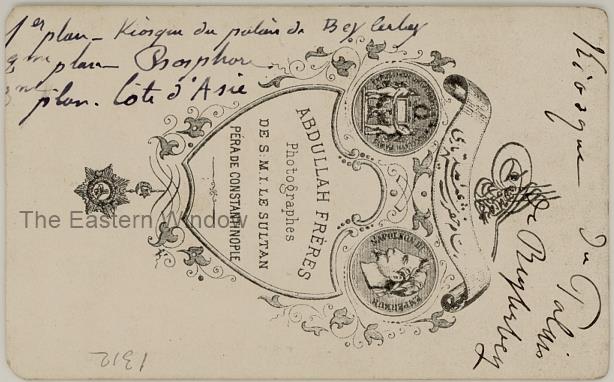 1er plan - Kiosque du palais de Beylerbey
2me plan - Bosphore
3me plan. Côte d'Asie
ABDULLAH FRÈRES
Photographes
DE S. M. I. LE SULTAN
PÉRA DE CONSTANTINOPLE
NAPOLEON III
EMPEREUR
Kiosque du Palais
de Beylerbey
The Eastern Window
1312